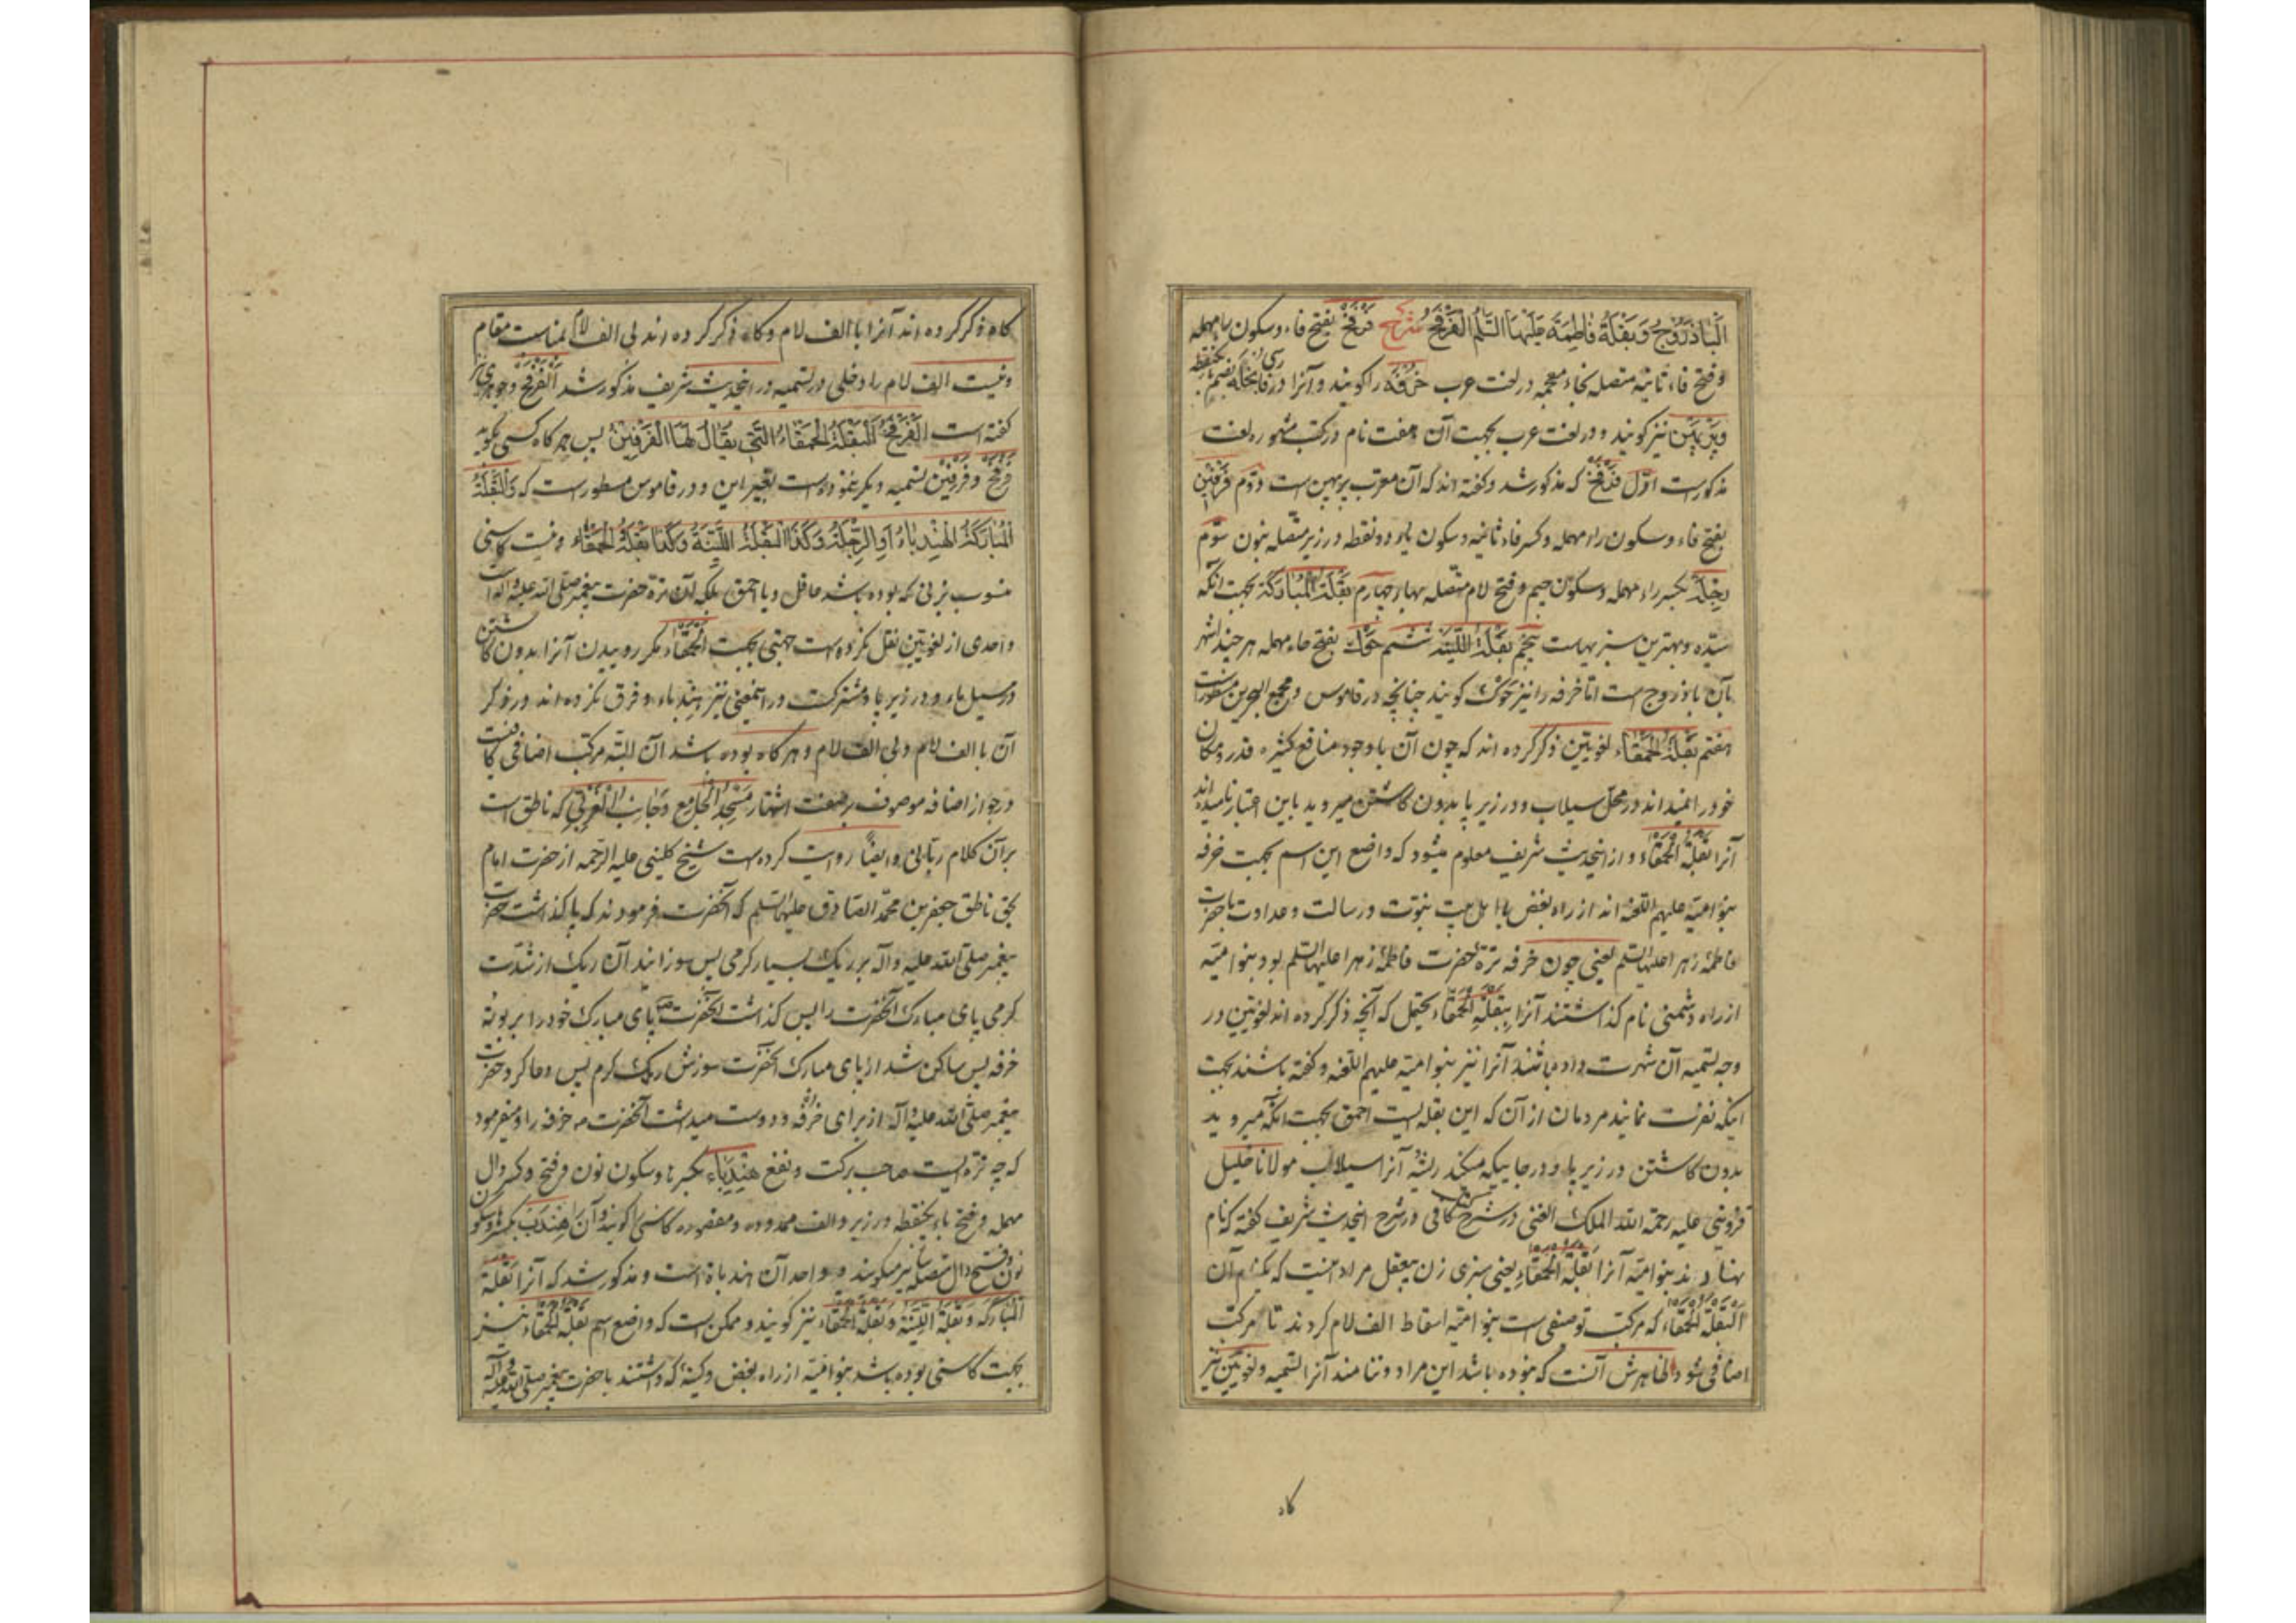 الباذروج و بقلة فاطمة علیها السلم الفرفخ شرح فرفخ بفتح فاء و سکون راء مهمله
و فتح فاء ثانیه متصله بخاء معجمه در لغت عرب خرفه را گویند و آنرا در فارسی
و پرپین نیز گویند و در لغت عرب بجهت آن هفت نام در کتب مشهوره لغت
مذکورست اوّل فرفخ که مذکور شد و گفته اند که آن معرب پرپهن است دوّم فرفین
بفتح فاء و سکون راء مهمله و کسر فاء ثانیه و سکون یاء دو نقطه در زیر متصله بنون سوّم
رجلة بکسر راء مهمله و سکون جیم و فتح لام متصله بهاء چهارم بقلة المبارکة بجهت آنکه
سیّده و بهترین سبزیهاست پنجم بقلة اللینة ششم حوک بفتح حاء مهمله هر چند اشهر
بآن باذروج است امّا خرفه را نیز حوک گویند چنانچه در قاموس و مجمع البحرین مسطورست
هفتم بقلة الحمقاء لغویّین ذکر کرده اند که چون آن با وجود منافع کثیره قدر و مکان
خود را نمیداند در محل سیلاب و در زیر پا بدون کاشتن میروید باین اعتبار نامیده اند
آنرا بقلة الحمقاء و از اینحدیث شریف معلوم میشود که واضع این اسم بجهت خرفه
بنو امیّه علیهم اللعنه اند از راه بغض با اهل بیت نبوّت و رسالت و عداوت با حضرت
فاطمهٔ زهرا علیها السلم یعنی چون خرفه ترهٔ حضرت فاطمهٔ زهرا علیها السلم بود بنو امیّه
از راه دشمنی نام گذاشتند آنرا ببقلة الحمقاء و یحتمل که آنچه ذکر کرده اند لغویّین در
وجه تسمیه آن شهرت داده باشند آنرا نیز بنو امیّه علیهم اللعنه و گفته باشند بجهت
اینکه نفرت نمایند مردمان از آن که این بقله ایست احمق بجهت آنکه میروید
بدون کاشتن در زیر پا و در جاییکه میکند ریشهٔ آنرا سیلاب مولانا خلیل
قزوینی علیه رحمة الله الملک الغنی در شرح کافی در شرح اینحدیث شریف گفته که نام
نهادند بنو امیّه آنرا بقلة الحمقاء یعنی سبزی زن بیعقل مراد اینست که نام آن
البقلة الحمقاء که مرکب توصیفی است بنو امیّه اسقاط الف لام کردند تا مرکب
اضافی شود و ظاهرش آنست که نبوده باشد این مراد و تنامند آنرا التسمیه و لغویّین نیز
گاه
گاه ذکر کرده اند آنرا با الف لام و گاه ذکر کرده اند بی الف لام بمناسبت مقام
و نیست الف لام را دخلی در تسمیه و در اینحدیث شریف مذکور شد الفرفخ و جوهری نیز
گفته است الفرفخ البقلة الحمقاء التی یقال لها الفرفین پس هر گاه کسی بگوید
فرفخ و فرفین تسمیه دیگر ننموده است بغیر این و در قاموس مسطور است که و البقلة
المبارکة الهندباء او الرجلة و کذا البقلة اللینة و کذا بقلة الحمقاء و نیست کاسنی
منسوب بزنی که بوده باشد عاقل و یا احمق بلکه آن ترهٔ حضرت پیغمبر صلی الله علیه و آله است
و احدی از لغویّین نقل نکرده است جهتی بجهت الحمقاء مگر روییدن آنرا بدون کاشتن
در مسیل ماء و در زیر پا و مشترکست در اینمعنی نیز هندباء و فرق نکرده اند در ذکر
آن با الف لام و بی الف لام و هر گاه بوده باشد آن البته مرکب اضافی کافیست
در جواز اضافه موصوف بر صفت اشتهار مسجد الجامع و جانب الغربی که ناطق است
بر آن کلام ربانی و ایضاً روایت کرده است شیخ کلینی علیه الرحمه از حضرت امام
بحق ناطق جعفر بن محمد الصادق علیهما السلم که آنحضرت فرمودند که پا گذاشت حضرت
پیغمبر صلی الله علیه و آله بر ریگ بسیار گرمی پس سوزانید آن ریگ از شدّت
گرمی پای مبارک آنحضرت را پس گذاشت آنحضرت ص پای مبارک خود را بر بوتهٔ
خرفه پس ساکن شد از پای مبارک آنحضرت سوزش ریگ گرم پس دعا کرد حضرت
پیغمبر صلی الله علیه و آله از برای خرفه و دوست میداشت آنحضرت ص خرفه را و میفرمود
که چه تره ایست صاحب برکت و نفع هندباء بکسر ها و سکون نون و فتح و کسر دال
مهمله و فتح باء یکنقطه در زیر و الف ممدوده و مقصوره کاسنی را گویند و آن را هندب بکسر ها و سکون
نون و فتح دال متصله بباء نیز میگویند و واحد آن هندباة است و مذکور شد که آنرا بقلة
المبارکه و بقلة اللینة و بقلة الحمقاء نیز گویند و ممکن است که واضع اسم بقلة الحمقاء نیز
بجهت کاسنی بوده باشد بنو امیّه از راه بغض و کینهٔ که داشتند با حضرت پیغمبر صلی الله علیه و آله